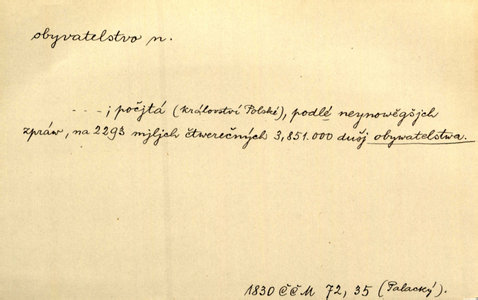 obyvatelstvo n.
- - - ; počjtá (království Polské), podlé neynowěgšjch
zpráw, na 2293 mjljch čtwerečných 3,851.000 dušj obywatelstwa.
1830 ČČM 72, 35 (Palacký).